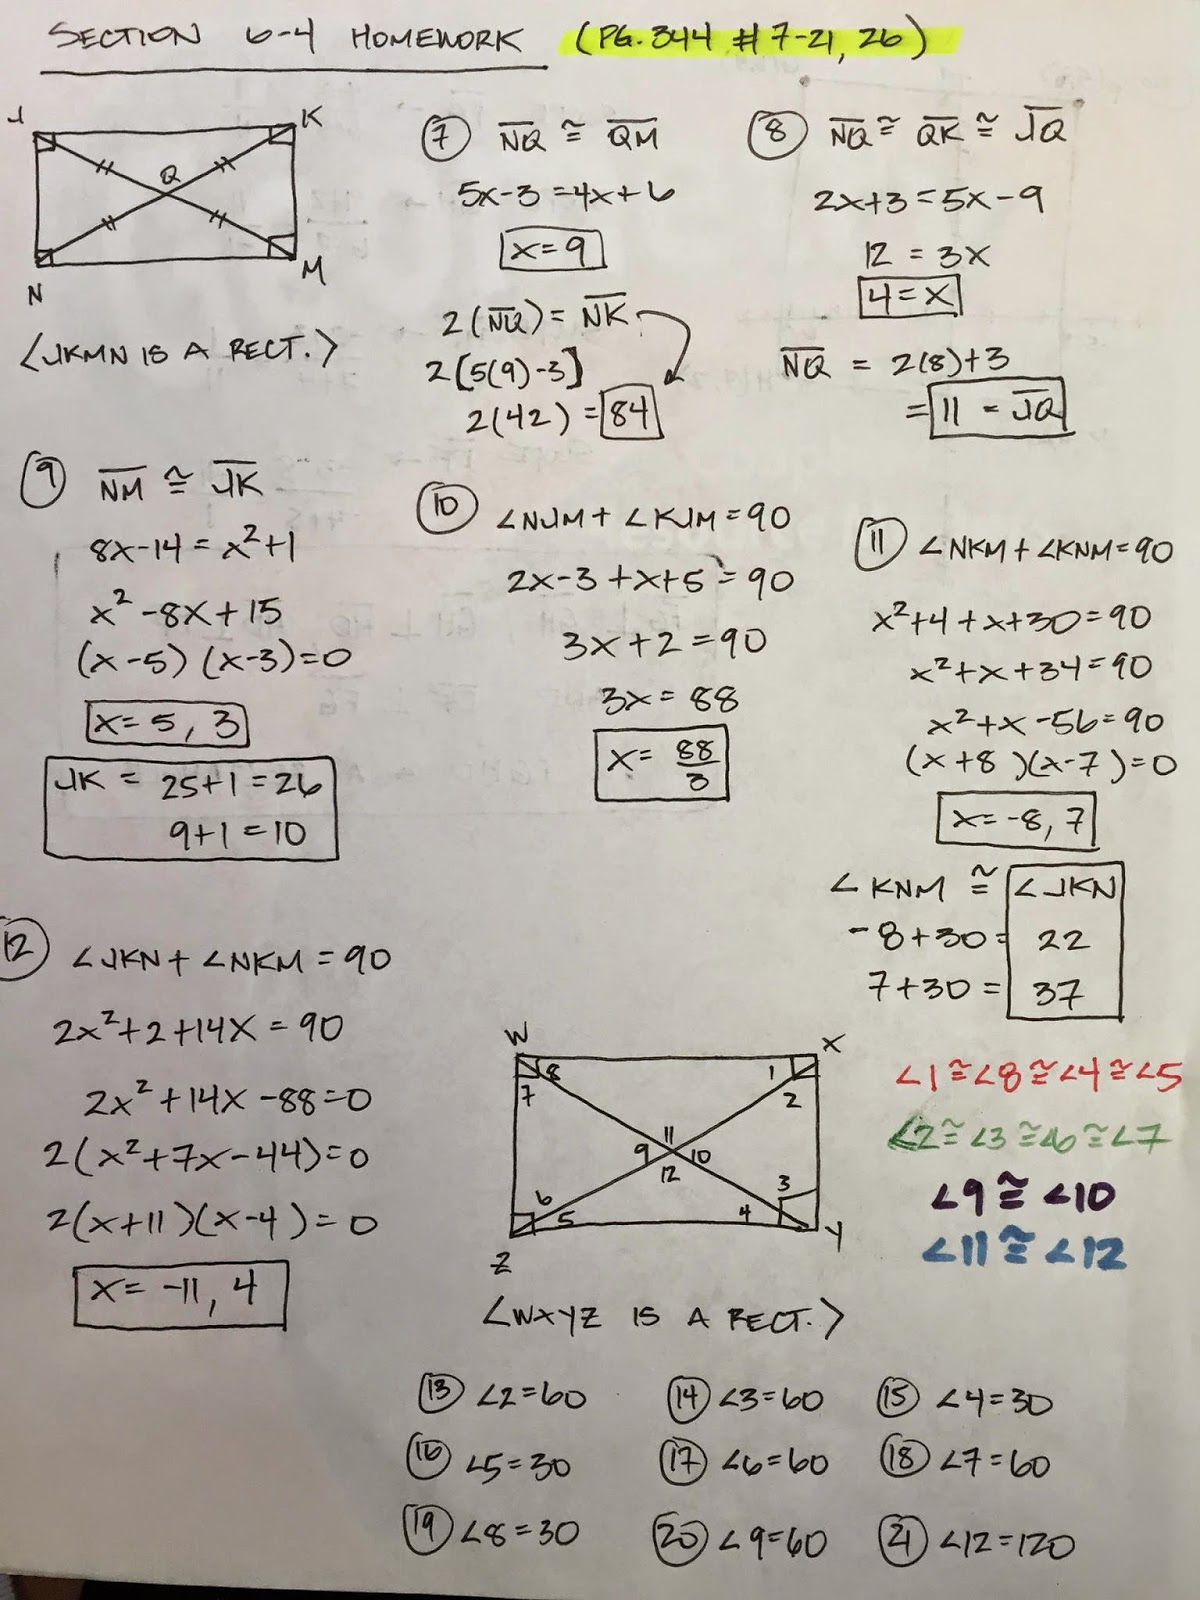 SECTION 6-4 HOMEWORK (PG. 344 # 7-21, 26)
J K
Q
N M
<JKMN IS A RECT.>
7 NQ ≅ QM
5x-3=4x+6
x=9
2(NQ)= NK
2[5(9)-3]
2(42) = 84
8 NQ ≅ QK ≅ JQ
2x+3=5x-9
12 = 3x
4=x
NQ = 2(8)+3
= 11 = JQ
9 NM ≅ JK
8x-14=x²+1
x²-8x+15
(x-5)(x-3)=0
x=5, 3
JK = 25+1=26
9+1=10
10 ∠NJM+∠KJM=90
2x-3+x+5=90
3x+2=90
3x=88
x= 88/3
11 ∠NKM+∠KNM=90
x²+4+x+30=90
x²+x+34=90
x²+x-56=90
(x+8)(x-7)=0
x=-8, 7
∠KNM ≅ ∠JKN
-8+30= 22
7+30= 37
12 ∠JKN+∠NKM=90
2x²+2+14x=90
2x²+14x-88=0
2(x²+7x-44)=0
2(x+11)(x-4)=0
x=-11, 4
W X
8 1
7 2
11
9 10
12
6 3
5 4
Z Y
<WXYZ IS A RECT.>
∠1≅∠8≅∠4≅∠5
∠2≅∠3≅∠6≅∠7
∠9≅∠10
∠11≅∠12
13 ∠2=60 14 ∠3=60 15 ∠4=30
16 ∠5=30 17 ∠6=60 18 ∠7=60
19 ∠8=30 20 ∠9=60 21 ∠12=120